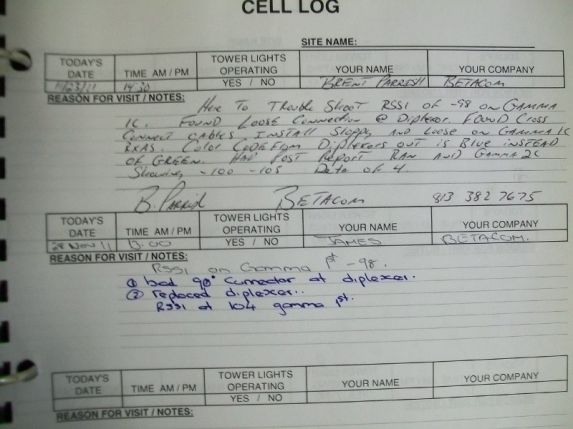 CELL LOG
SITE NAME:
TODAY'S DATE TIME AM / PM TOWER LIGHTS OPERATING YOUR NAME YOUR COMPANY
11/23/11 14:30 YES / NO BRENT PARRISH BETACOM
REASON FOR VISIT / NOTES:
Here To Trouble Shoot RSSI OF -98 on GAMMA
1C. FOUND LOOSE Connection @ Diplexor. FOUND Cross
Connect CABLES. INSTALL Sloppy AND Loose on GAMMA 1C
RXAS. Color Code From Diplexors OUT is BLUE INSTEAD
OF GREEN. HAD POST Report RAN AND GAMMA 2C
Showing -100 -105 Delta OF 4.
B. Parrish BETACOM 813 382 7675
TODAY'S DATE TIME AM / PM TOWER LIGHTS OPERATING YOUR NAME YOUR COMPANY
28 NOV 11 YES / NO JAMES BETACOM.
REASON FOR VISIT / NOTES:
RSSI on Gamma -98.
① bad 90° connector at diplexer.
② replaced diplexer..
RSSI at 104 gamma
TODAY'S DATE TIME AM / PM TOWER LIGHTS OPERATING YOUR NAME YOUR COMPANY
YES / NO
REASON FOR VISIT / NOTES: